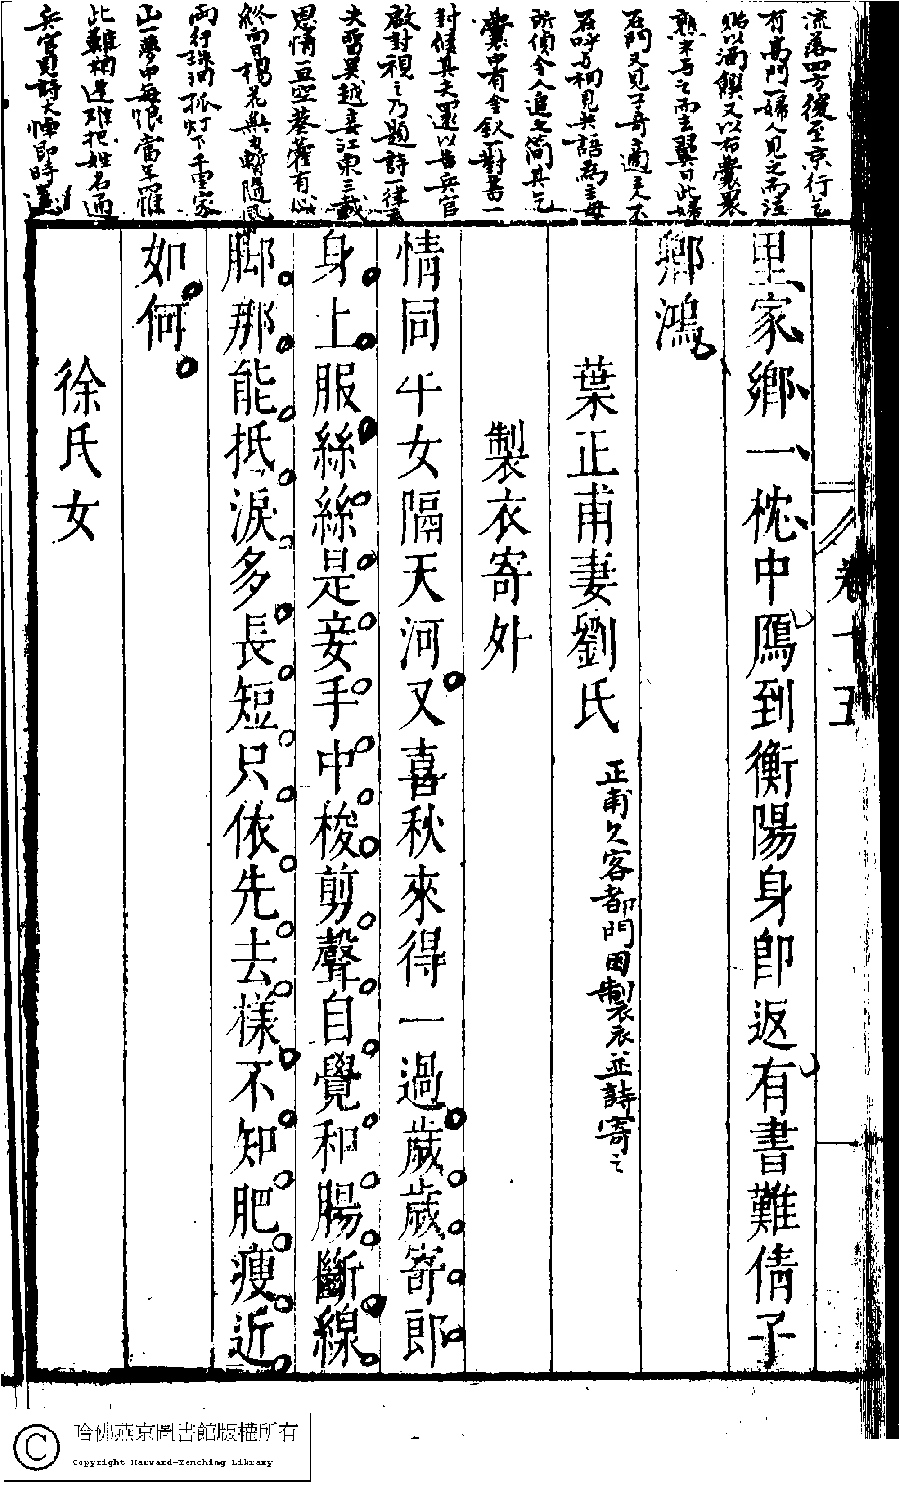 流落四方後至京行乞
有高門一婦人見之而泣
貽以酒饌又以布囊裹
在門又見子奇適主人不
在呼與相見共語為主母
所偵令人追之簡其乞
囊中有金釵一對書一
封候其夫還以告兵官
啟封視之乃題詩一律云
夫留吳越妾江東三載
恩情一旦空葵藿有心
終向日楊花無力暫隨風
兩行珠淚孤燈下千里家
山一夢中每恨當年罹
此難相逢難把姓名通
兵官見詩大慟即時還
里家鄉一枕中鴈到衡陽身卽返有書難倩子
卿鴻
葉正甫妻劉氏 正甫久客都門因製衣並詩寄之
製衣寄外
情同牛女隔天河又喜秋來得一過歲歲寄郎
身上服絲絲是妾手中梭剪聲自覺和腸斷線
脚那能抵淚多長短只依先去樣不知肥瘦近
如何
徐氏女
卷十五
哈佛燕京圖書館版權所有
Copyright Harvard-Yenching Library